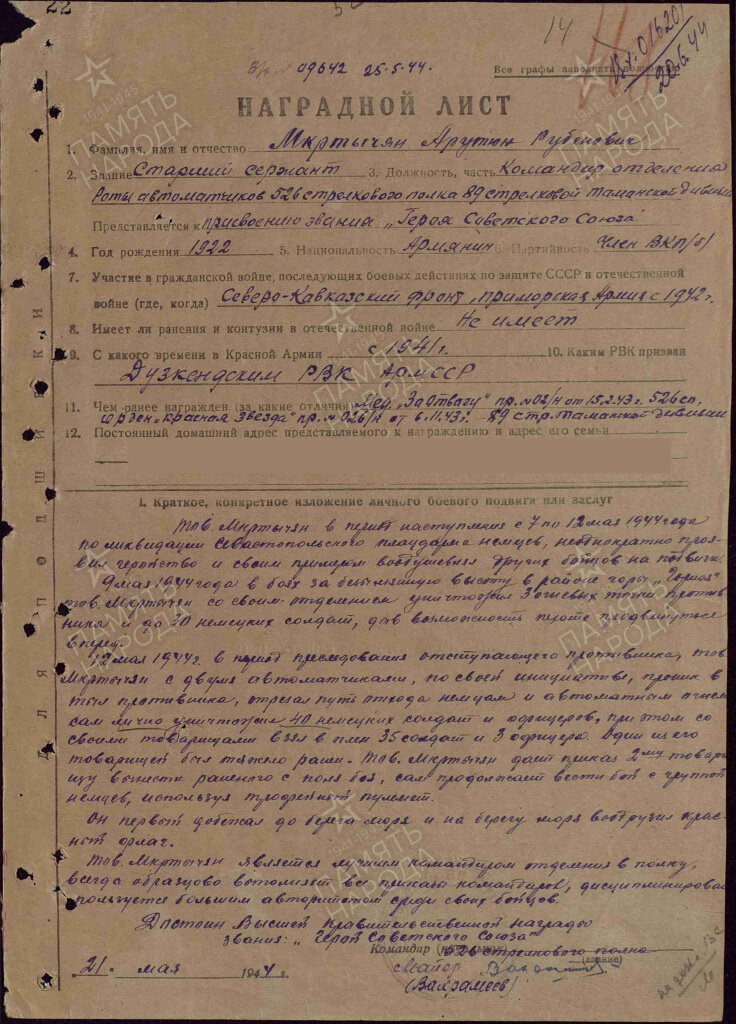 22
14
Вх. 01620
20.6.44
Вх № 09642 25.5.44.
Все графы заполнять
НАГРАДНОЙ ЛИСТ
1. Фамилия, имя и отчество Мкртычян Арутюн Рубенович
2. Звание Старший сержант 3. Должность, часть Командир отделения
Роты автоматчиков 526 стрелкового полка 89 стрелковой Таманской Дивизии
Представляется к присвоению звания „Героя Советского Союза"
4. Год рождения 1922 5. Национальность Армянин 6. Партийность Член ВКП/б/
7. Участие в гражданской войне, последующих боевых действиях по защите СССР и отечественной
войне (где, когда) Северо-Кавказский фронт, Приморская Армия с 1942 г.
8. Имеет ли ранения и контузии в отечественной войне Не имеет
9. С какого времени в Красной Армии с 1941 г. 10. Каким РВК призван
Дузкендским РВК АрмССР
11. Чем ранее награжден (за какие отличия) Мед. „За Отвагу" пр. № 02/н от 15.2.43 г. 526 сп,
орден „Красная Звезда" пр. № 026/н от 6.11.43 г. 89 стр. Таманской Дивизии
12. Постоянный домашний адрес представляемого к награждению и адрес его семьи
I. Краткое, конкретное изложение личного боевого подвига или заслуг
Тов. Мкртычян в период наступления с 7 по 12 мая 1944 года
по ликвидации Севастопольского плацдарма немцев, неоднократно проя-
вил геройство и своим примером воодушевлял других бойцов на подвиги.
9 мая 1944 года в боях за безымянную высоту в районе горы „Горная"
тов. Мкртычян со своим отделением уничтожил 3 огневых точки против-
ника и до 30 немецких солдат, дав возможность пехоте продвинуться
вперед.
12 мая 1944 г. в период преследования отступающего противника, тов
Мкртычян с двумя автоматчиками, по своей инициативе, проник в
тыл противника, отрезал путь отхода немцам и автоматным огнем
сам лично уничтожил 40 немецких солдат и офицеров, при этом со
своими товарищами взял в плен 35 солдат и 3 офицера. Один из его
товарищей был тяжело ранен. Тов. Мкртычян дает приказ 2му товари
щу вынести раненого с поля боя, сам продолжает вести бой с группой
немцев, используя трофейный пулемет.
Он первый добежал до берега моря и на берегу моря воодрузил крас-
ный флаг.
Тов. Мкртычян является лучшим командиром отделения в полку,
всегда образцово выполняет все приказы командиров, дисциплинирован
пользуется большим авторитетом среди своих бойцов.
Достоин Высшей Правительственной награды
звания: „Герой Советского Союза"
Командир (начальник) 526 стрелкового полка
(звание)
21. мая 1944 г. Майор
(Вахрамеев)
ДЛЯ ПОДШИВКИ
ПАМЯТЬ НАРОДА
1941-1945